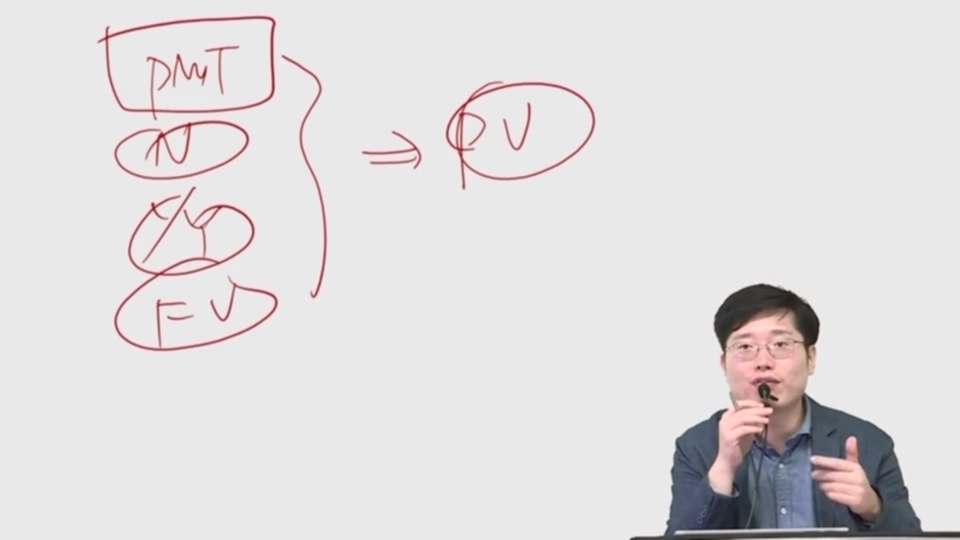 PMT
N
I/Y
FV
PV